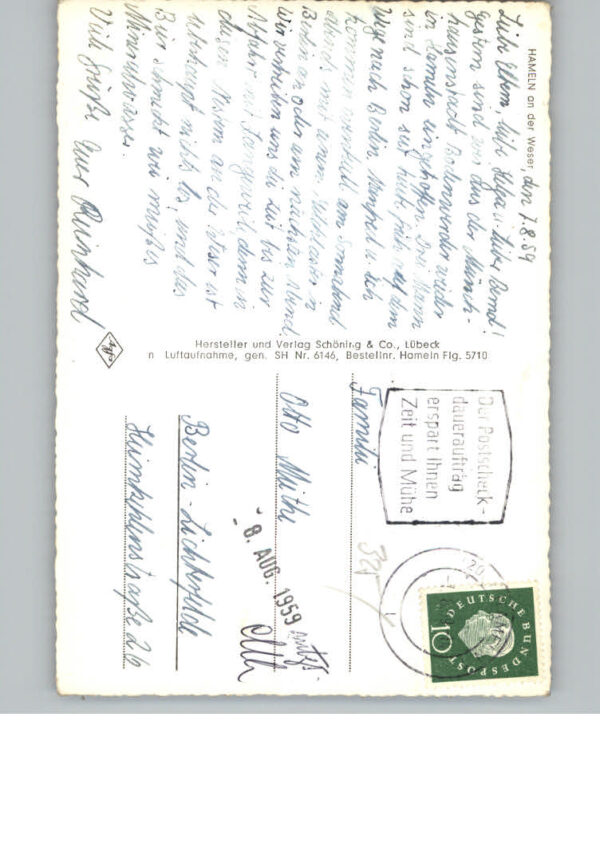 HAMELN an der Weser, den 7.8.59
Liebe Eltern, liebe Helga u. lieber Bernd!
Gestern sind wir aus der Münch-
hausenstadt Bodenwerder wieder
in Hameln eingetroffen. Drei Mann
sind schon seit heute früh auf dem
Wege nach Berlin. Manfred u. ich
kommen eventuell am Sonnabend
abends mit einem in
Berlin an oder am nächsten Abend.
Wir vertreiben uns die Zeit bis zur
Abfahrt mit Langeweile, denn in
diesem an der Weser ist
überhaupt nichts los, und das
Bier schmeckt wie
Mineralwasser.
Viele Grüße Euer Reinhard
Agfa
Hersteller und Verlag Schöning & Co., Lübeck
n Luftaufnahme, gen. SH Nr. 6146, Bestellnr. Hameln Flg. 5710
Der Postscheck-
dauerauftrag
erspart Ihnen
Zeit und Mühe
DEUTSCHE BUNDESPOST
10
Familie
Otto
-8. AUG. 1959
Berlin-Lichterfelde
26